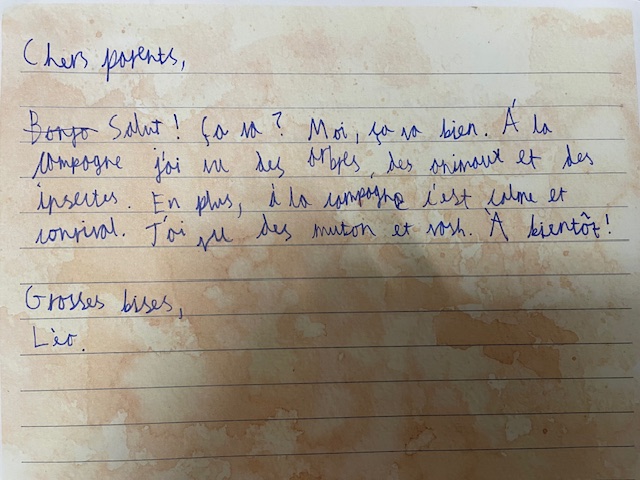 Chers parents,
Bonjo Salut! Ça va? Moi, ça va bien. Á la
campagne j'ai vu des arbres, des animaux et des
insectes. En plus, á la campagne c'est calme et
convival. J'ai vu des muton et vash. À bientôt!
Grosses bises,
Lèo.